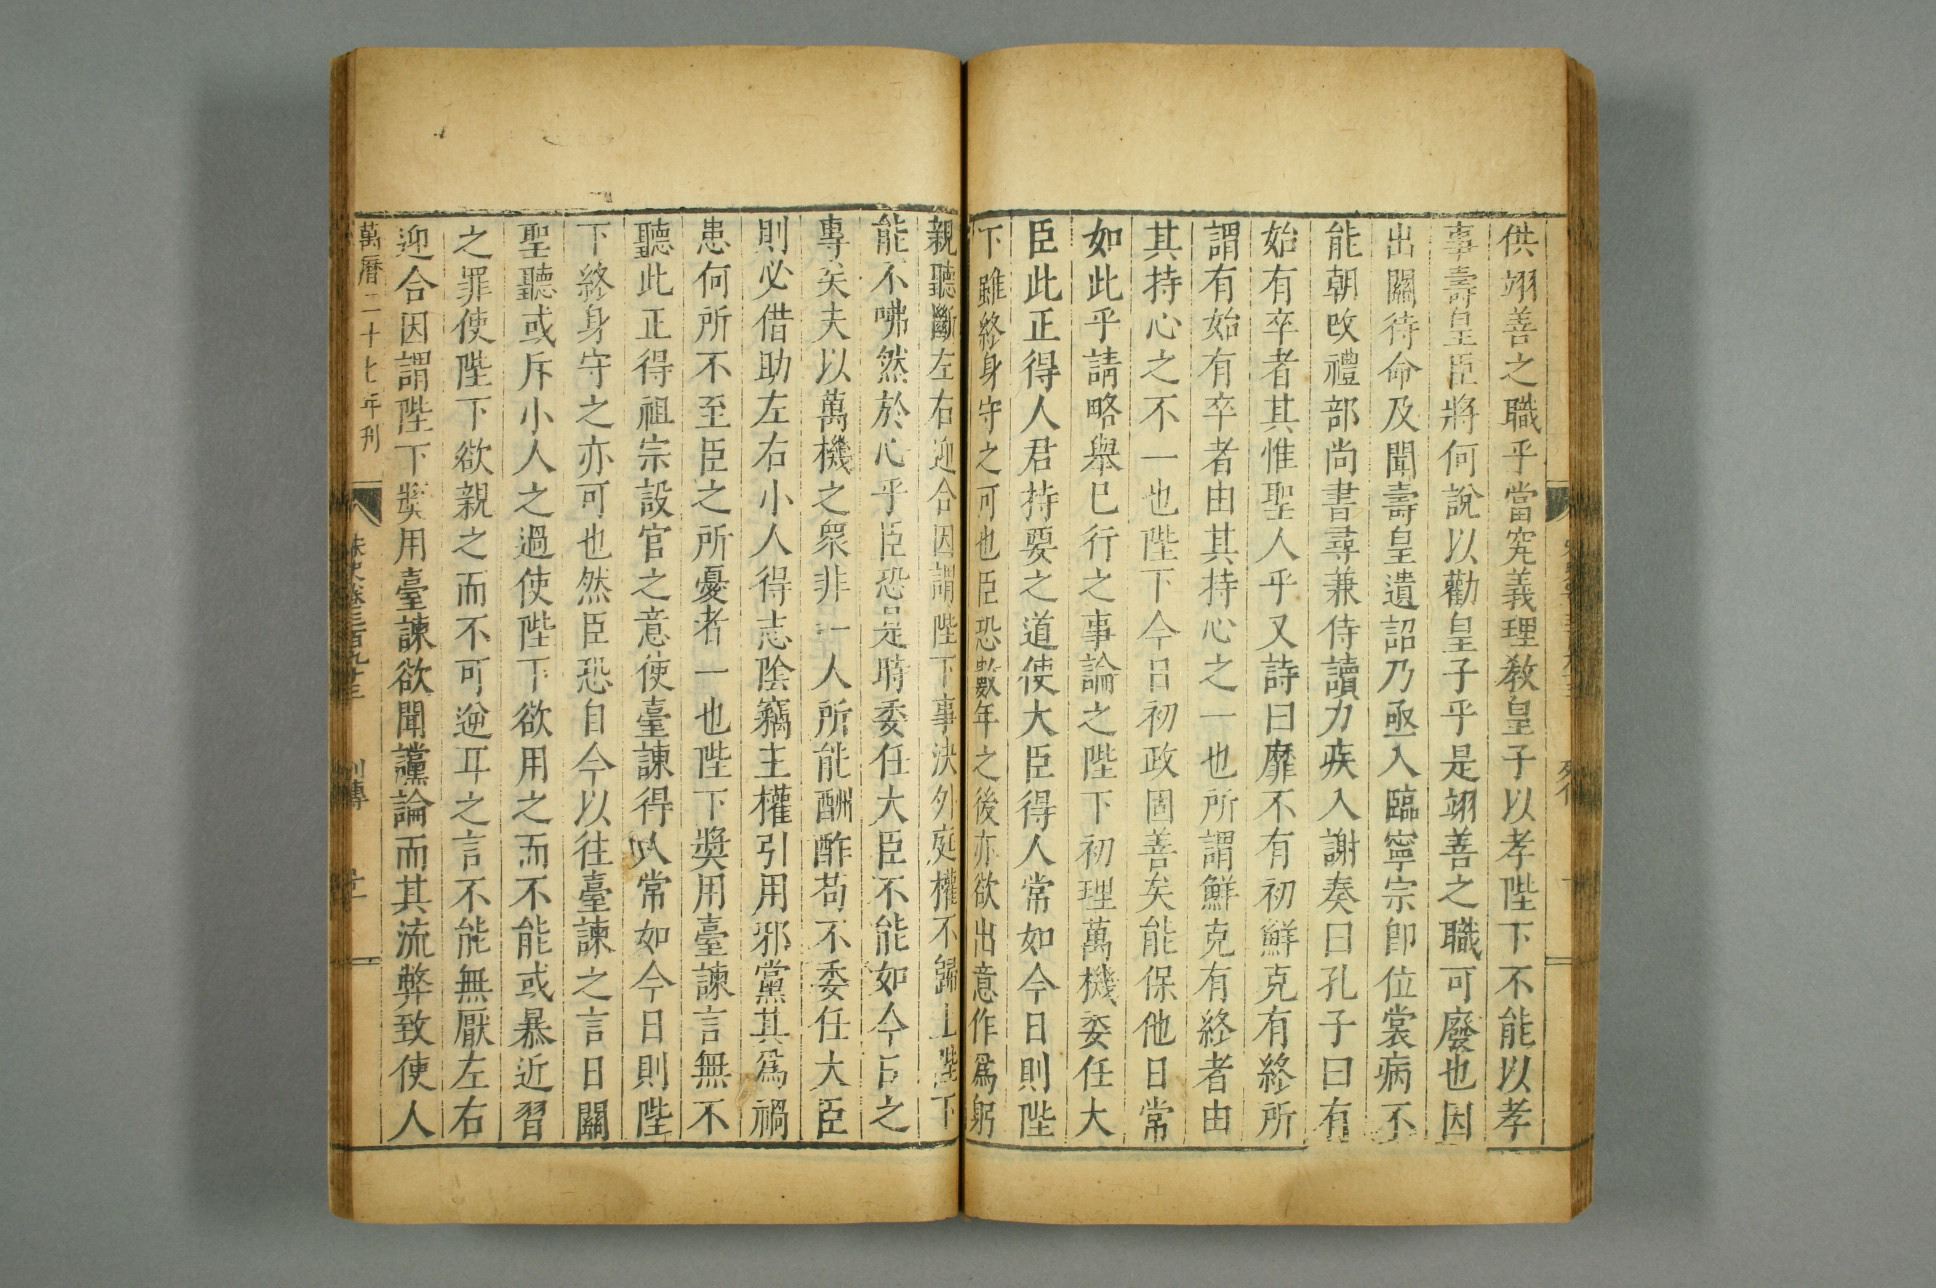 供翊善之職乎當究義理教皇子以孝陛下不能以孝
事壽皇臣將何說以勸皇子乎是翊善之職可廢也因
出關待命及聞壽皇遺詔乃亟入臨寧宗卽位裳病不
能朝改禮部尚書尋兼侍讀力疾入謝奏曰孔子曰有
始有卒者其惟聖人乎又詩曰靡不有初鮮克有終所
謂有始有卒者由其持心之一也所謂鮮克有終者由
其持心之不一也陛下今日初政固善矣能保他日常
如此乎請略舉已行之事論之陛下初理萬機委任大
臣此正得人君持要之道使大臣得人常如今日則陛
下雖終身守之可也臣恐數年之後亦欲出意作爲躬
親聽斷左右迎合因謂陛下事決外庭權不歸上陛下
能不咈然於心乎臣恐是時委任大臣不能如今日之
專矣夫以萬機之衆非一人所能酬酢苟不委任大臣
則必借助左右小人得志陰竊主權引用邪黨其爲禍
患何所不至臣之所憂者一也陛下奬用臺諫言無不
聽此正得祖宗設官之意使臺諫得人常如今日則陛
下終身守之亦可也然臣恐自今以往臺諫之言日關
聖聽或斥小人之過使陛下欲用之而不能或暴近習
之罪使陛下欲親之而不可逆耳之言不能無厭左右
迎合因謂陛下奬用臺諫欲聞讜論而其流弊致使人
萬曆二十七年刊
宋史卷三百九十三 列傳 十一